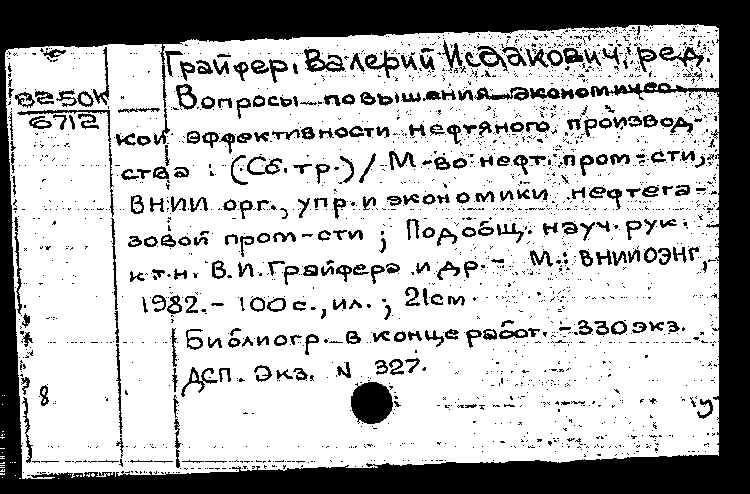 Грайфер, Валерий Исаакович, ред.
В250К
6712
Вопросы повышения экономичес-
кой эффективности нефтяного производ-
ства : (Сб. тр.) / М-во нефт. пром-сти,
ВНИИ орг., упр. и экономики нефтега-
зовой пром-сти ; Под общ. науч. рук.
к.т.н. В.И. Грайфера и др. - М.: ВНИИОЭНГ,
1982. - 100 с., ил. ; 21 см.
Библиогр. в конце работ. - 330 экз.
ДСП. Экз. N 327.
8
у